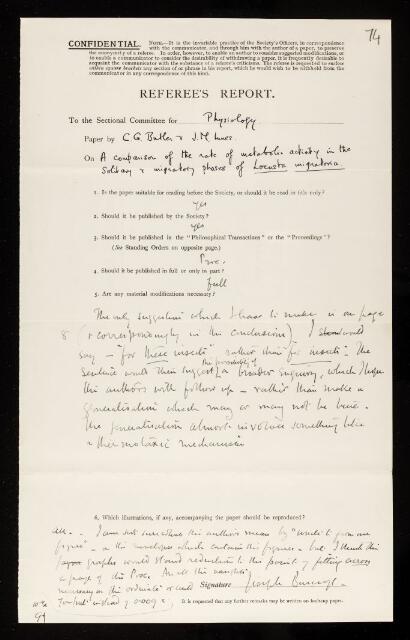 74
CONFIDENTIAL. NOTE.—It is the invariable practice of the Society's Officers, in correspondence
with the communicator, and through him with the author of a paper, to preserve
the anonymity of a referee. In order, however, to enable an author to consider suggested modifications, or
to enable a communicator to consider the desirability of withdrawing a paper, it is frequently desirable to
acquaint the communicator with the substance of a referee's criticisms. The referee is requested to
any section of or phrase in his report, which he would wish to be withheld from the
communicator in any correspondence of this kind.
REFEREE'S REPORT.
To the Sectional Committee for Physiology
Paper by C G Butler & J. M. Innes
On A comparison of the rate of metabolic activity in the
Solitary & migratory phases of Locusta migratoria
1. Is the paper suitable for reading before the Society, or should it be read in title only?
Yes
2. Should it be published by the Society?
Yes
3. Should it be published in the "Philosophical Transactions" or the "Proceedings"?
(See Standing Orders on opposite page.)
Proc.
4. Should it be published in full or only in part?
full
5. Are any material modifications necessary?
The only suggestion which I have to make is on page
8 (& correspondingly in the conclusion) I should
say – "for these insects" rather than "for insects". The
sentence would then suggest the possibility of a broader enquiry, which I hope
the authors will follow up – rather than make a
generalisation which may or may not be true.
The generalisation almost involves something like
a thermotaxic mechanism
6. Which illustrations, if any, accompanying the paper should be reproduced?
all. – I am not sure what the authors mean by "
figures" – on the envelope which contains the figures – but I think the
graphs would stand reduction to the point of getting across
a page of the Proc.
necessary on the ordinate
Signature Joseph Barcroft.
for but instead of 0.009
It is requested that any further remarks may be written on fly-leaf paper.